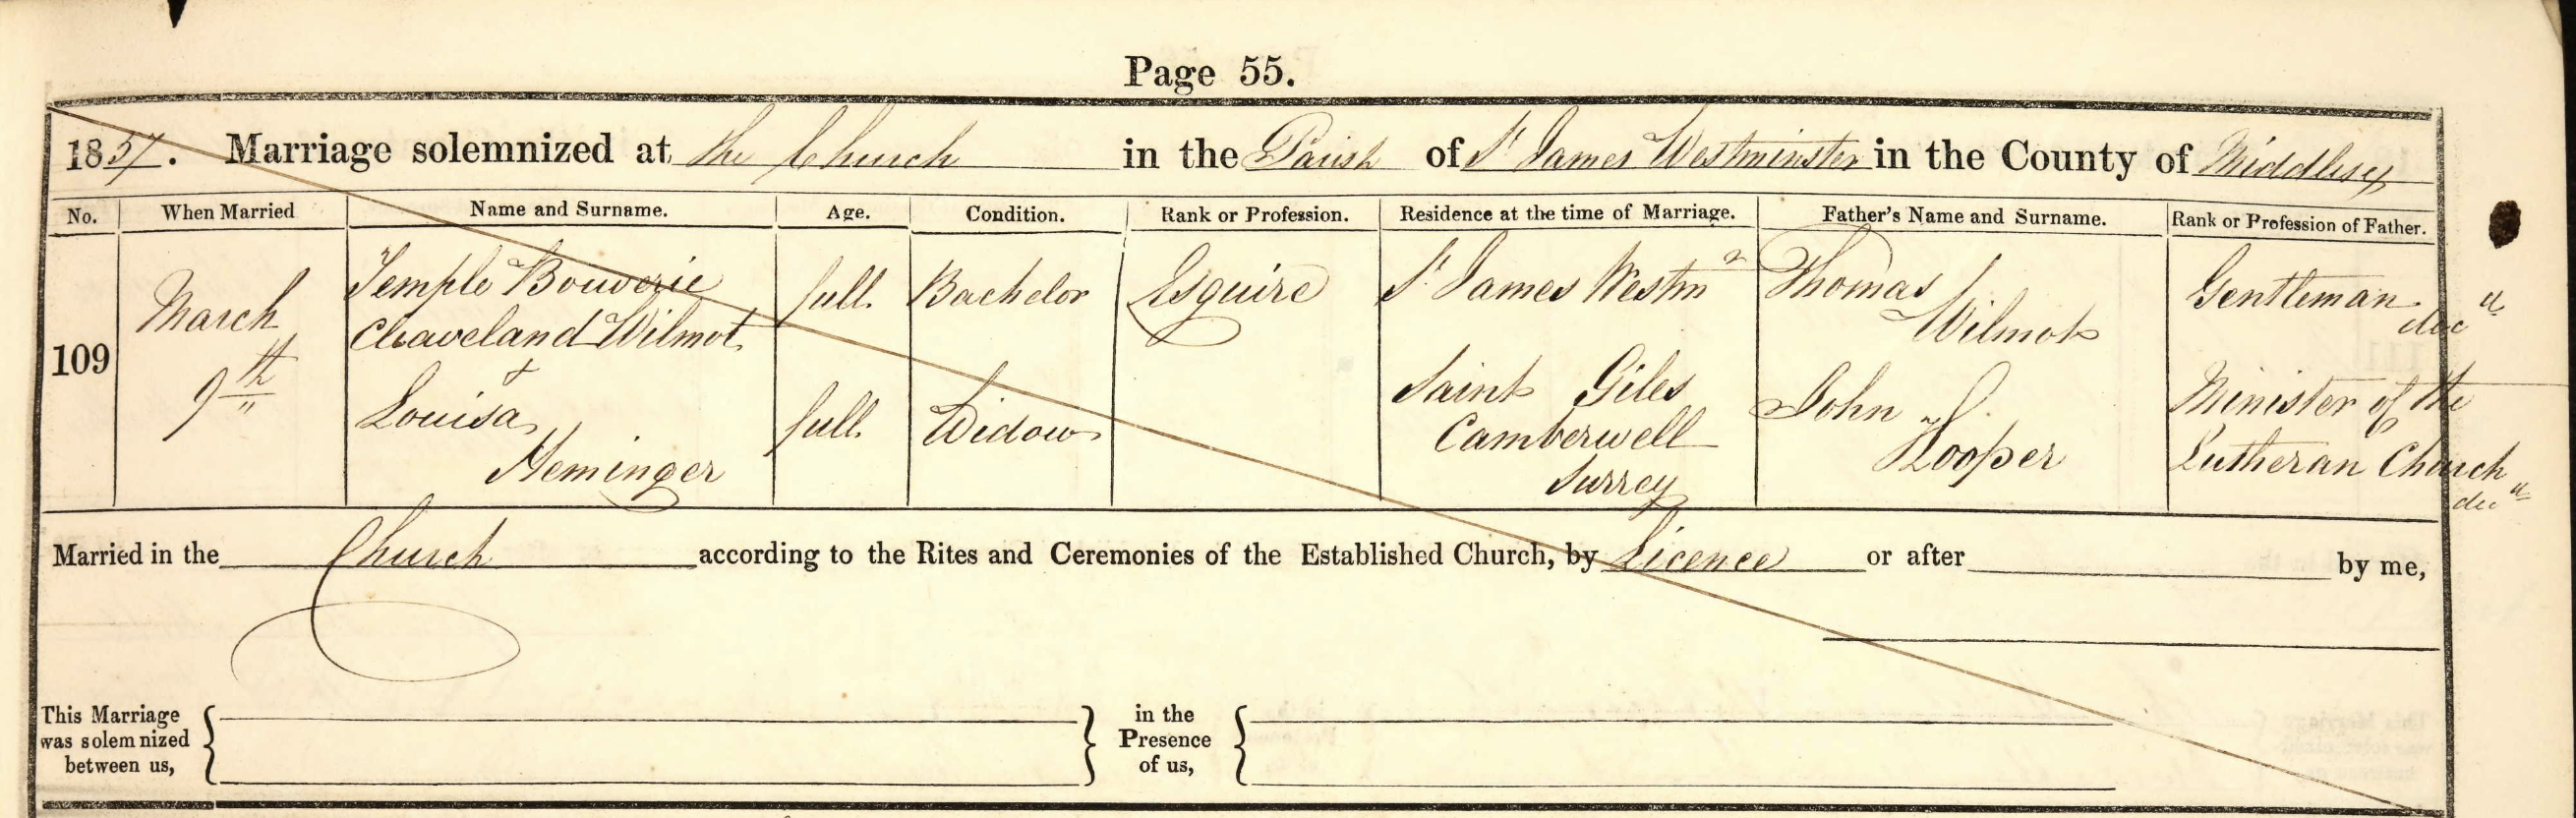 Page 55.
1857. Marriage solemnized at the Church in the Parish of St James Westminster in the County of Middlesex
No. When Married Name and Surname. Age. Condition. Rank or Profession. Residence at the time of Marriage. Father's Name and Surname. Rank or Profession of Father.
109
March
9th
Temple Bouverie
Cleaveland Wilmot
&
Louisa
Heminger
full
full
Bachelor
Widow
Esquire
St James Westmr
Saint Giles
Camberwell
Surrey
Thomas
Wilmot
John
Hooper
Gentleman
decd
Minister of the
Lutheran Church
decd
Married in the Church according to the Rites and Ceremonies of the Established Church, by Licence or after by me,
This Marriage
was solemnized
between us,
in the
Presence
of us,